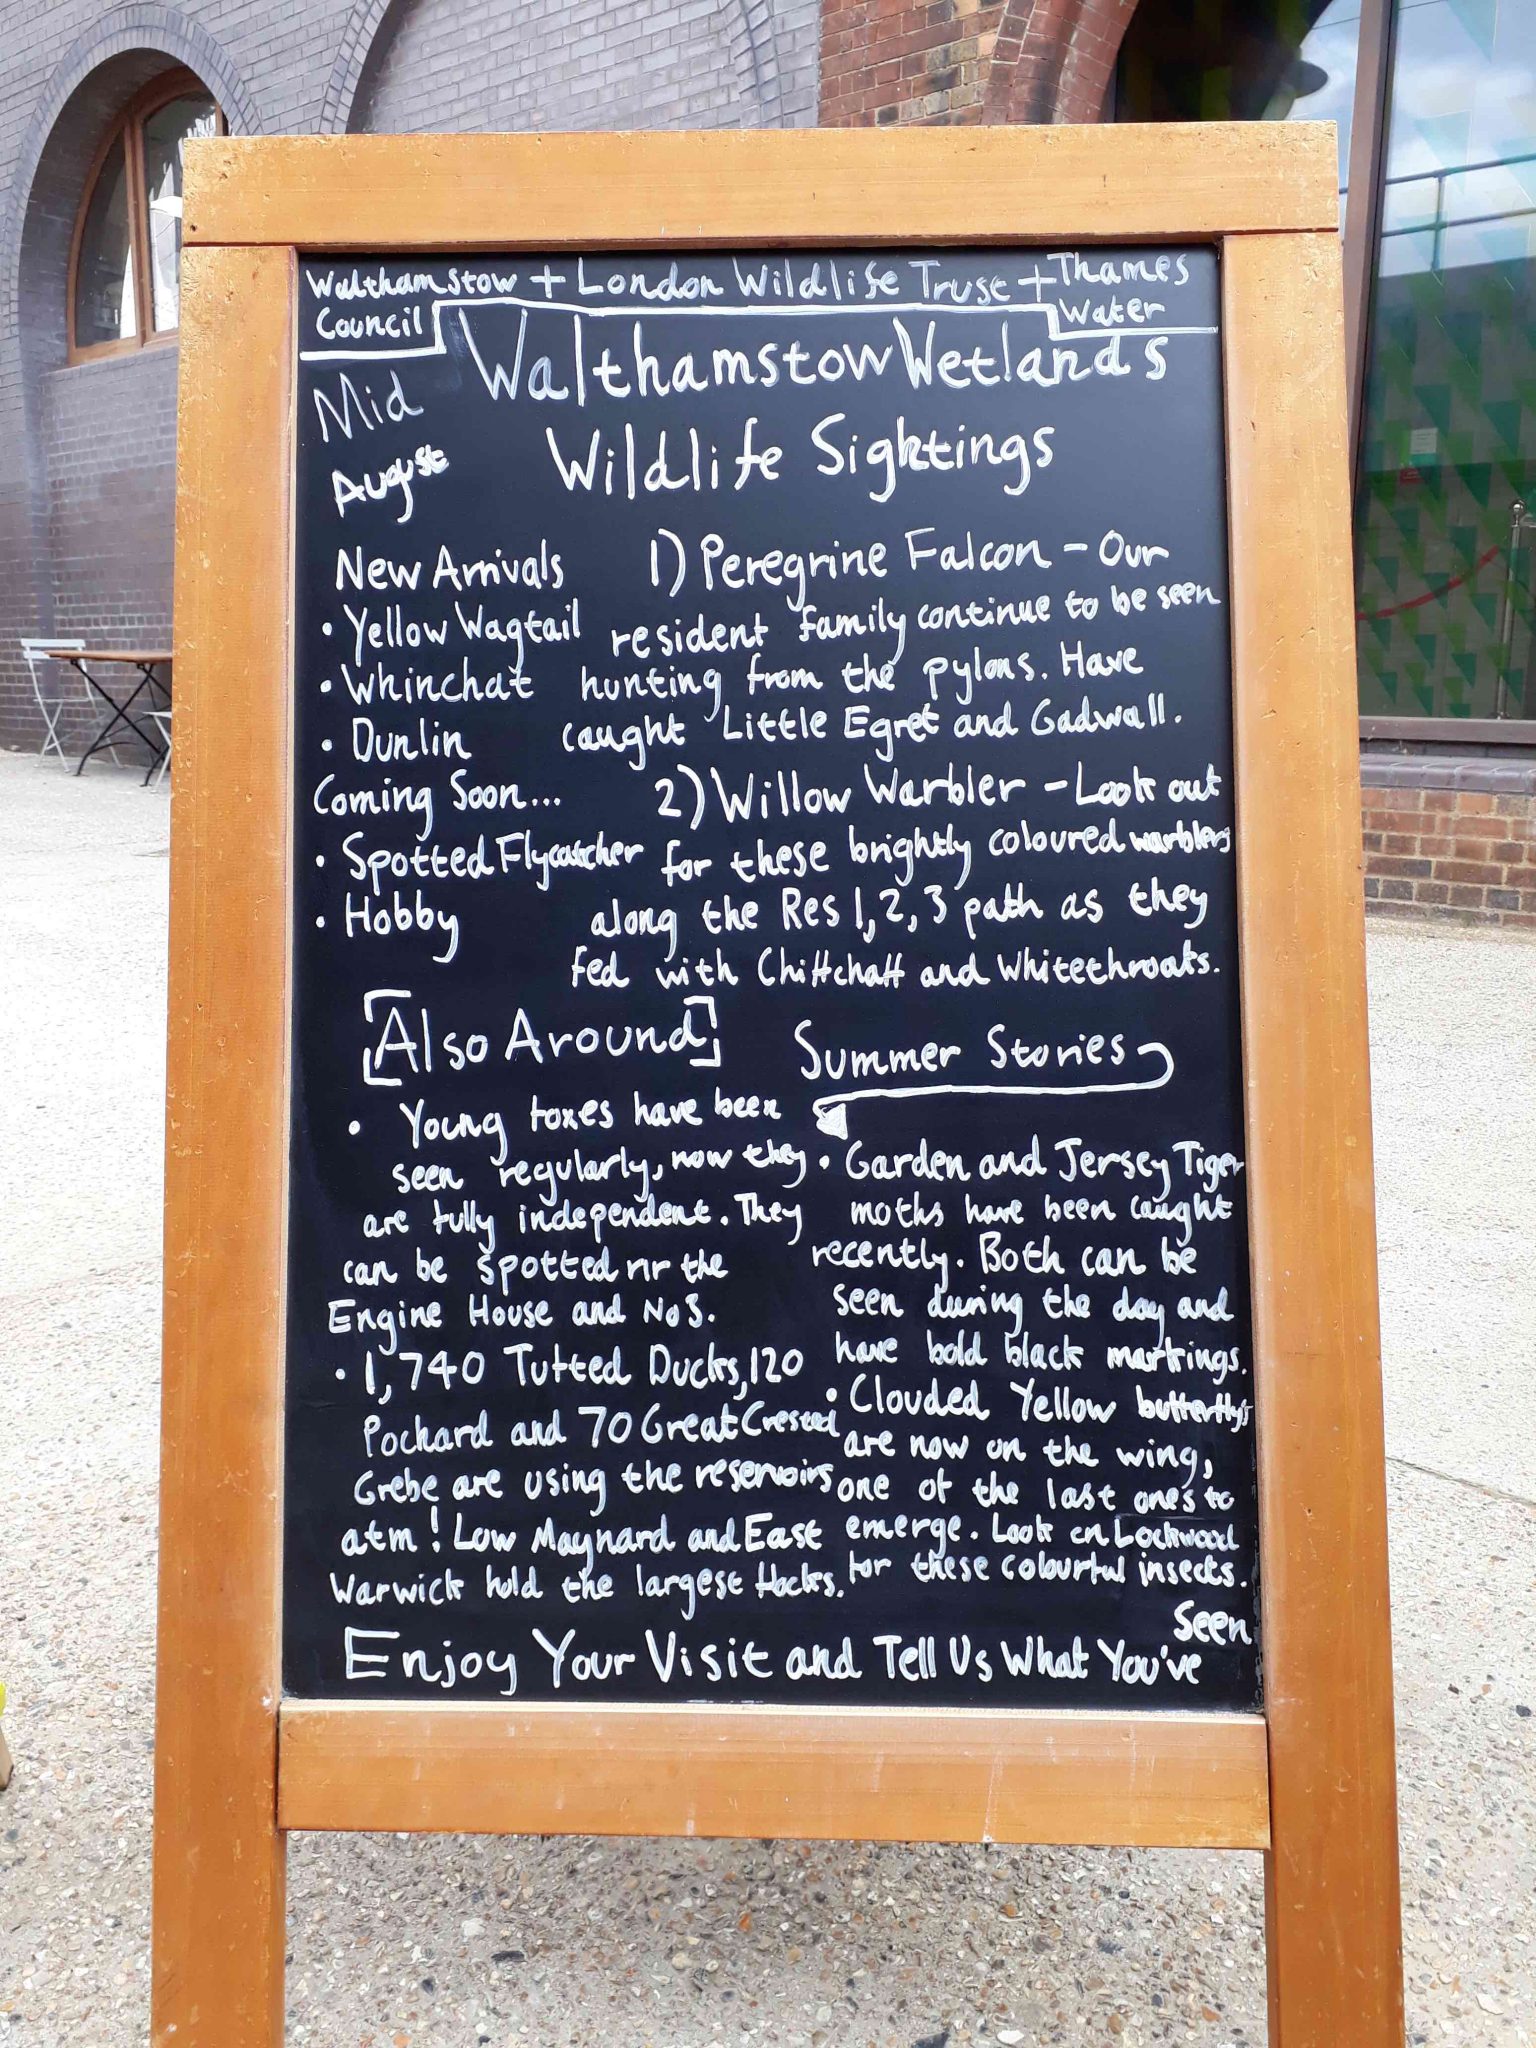 Walthamstow + London Wildlife Trust + Thames
Council
Water
Mid
August
Walthamstow Wetlands
Wildlife Sightings
New Arrivals
• Yellow Wagtail
• Whinchat
• Dunlin
Coming Soon...
• Spotted Flycatcher
• Hobby
1) Peregrine Falcon - Our
resident family continue to be seen
hunting from the pylons. Have
caught Little Egret and Gadwall.
2) Willow Warbler - Look out
for these brightly coloured warblers
along the Res 1, 2, 3 path as they
fed with Chiffchaff and Whitethroats.
[Also Around]
• Young foxes have been
seen regularly, now they
are fully independent. They
can be spotted nr the
Engine House and No3.
• 1,740 Tufted Ducks, 120
Pochard and 70 Great Crested
Grebe are using the reservoirs
atm! Low Maynard and East
Warwick hold the largest flocks.
Summer Stories
• Garden and Jersey Tiger
moths have been caught
recently. Both can be
seen during the day and
have bold black markings.
• Clouded Yellow butterfly's
are now on the wing,
one of the last ones to
emerge. Look on Lockwood
for these colourful insects.
Enjoy Your Visit and Tell Us What You've
Seen